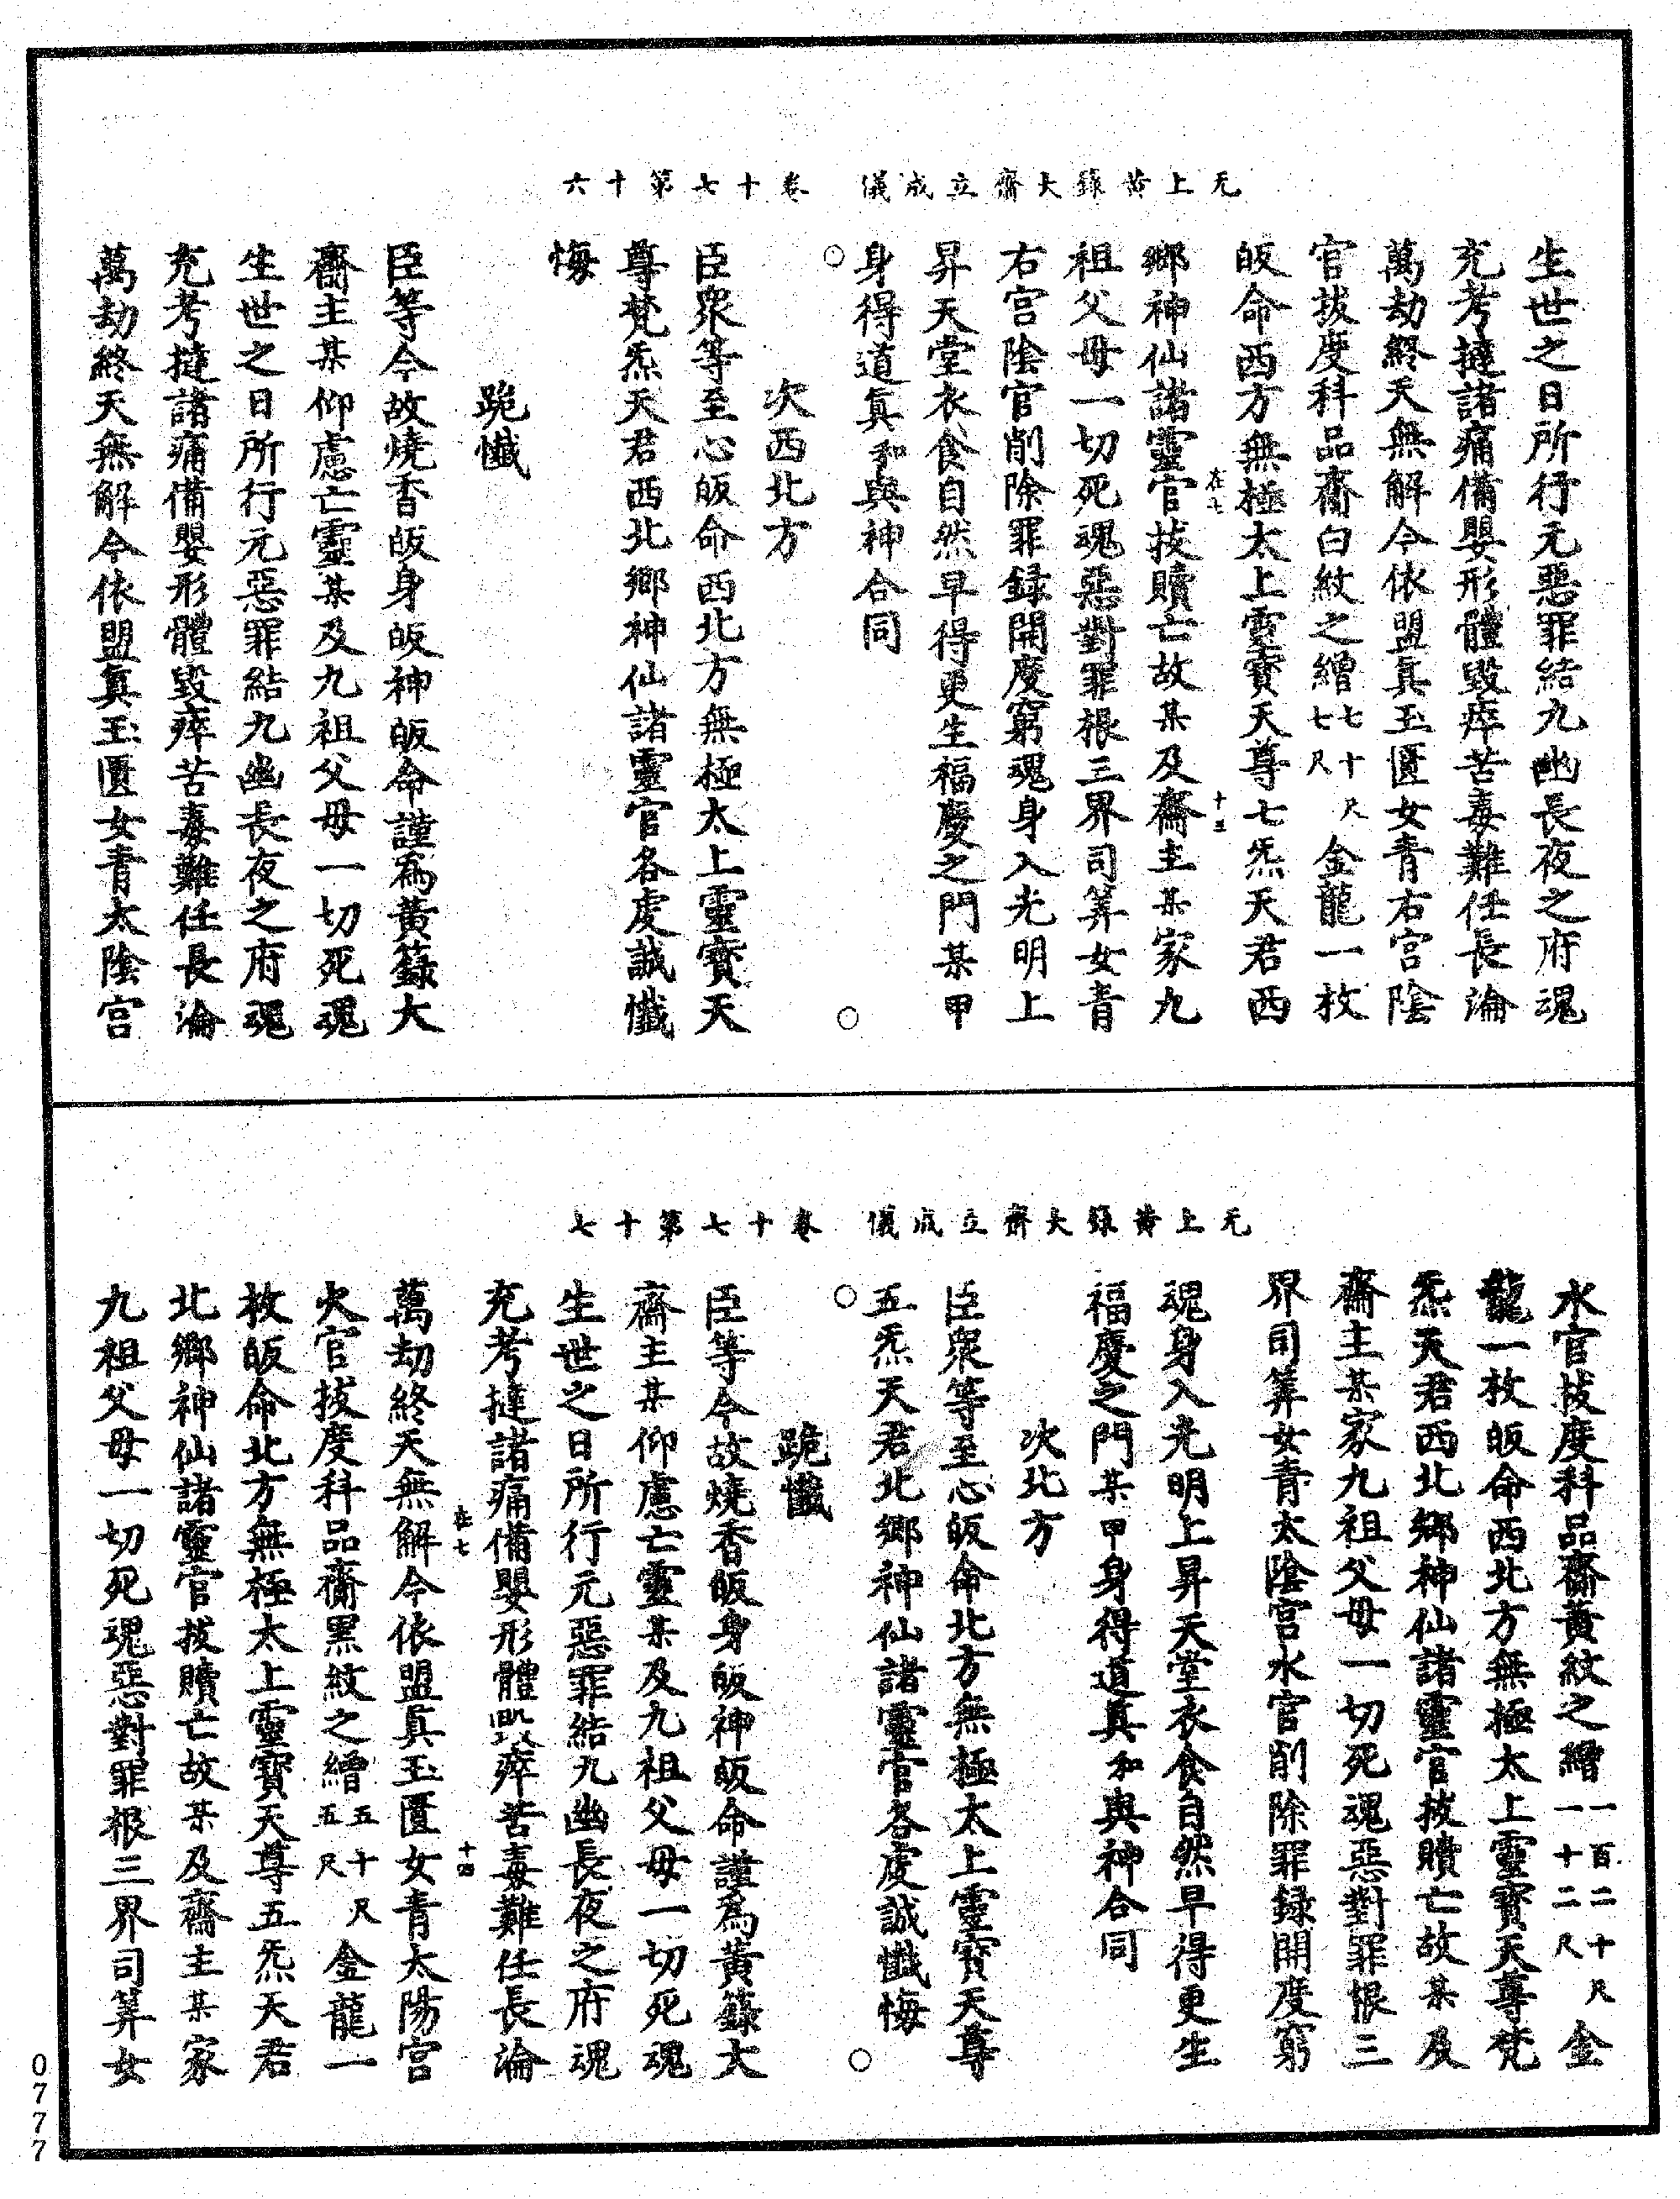 无上黃籙大齋立成儀　卷十七第十六
生世之日所行元惡罪結九幽長夜之府魂
充考撻諸痛備嬰形體毀瘁苦毒難任長淪
萬劫終天無解今依盟真玉匱女青右宮陰
官拔度科品齎白紋之繒七十尺七尺金龍一枚
皈命西方無極太上靈寶天尊七炁天君西
在七　十三
鄉神仙諸靈官拔贖亡故某及齋主某家九
祖父母一切死魂惡對罪根三界司筭女青
右宮陰官削除罪録開度窮魂身入光明上
昇天堂衣食自然早得更生福慶之門某甲
身得道真和與神合同
○　○
次西北方
臣衆等至心皈命西北方無極太上靈寶天
尊梵炁天君西北鄉神仙諸靈官各虔誠懺
悔
跪懺
臣等今故燒香皈身皈神皈命謹為黃籙大
齋主某仰慮亡靈某及九祖父母一切死魂
生世之日所行元惡罪結九幽長夜之府魂
充考撻諸痛備嬰形體毀瘁苦毒難任長淪
萬劫終天無解今依盟真玉匱女青太陰宮
无上黃籙大齋立成儀　卷十七第十七
水官拔度科品齎黃紋之繒一百二十尺一十二尺金
龍一枚皈命西北方無極太上靈寶天尊梵
炁天君西北鄉神仙諸靈官拔贖亡故某及
齋主某家九祖父母一切死魂惡對罪恨三
界司筭女青太陰宮水官削除罪録開度窮
魂身入光明上昇天堂衣食自然早得更生
福慶之門某甲身得道真和與神合同
次北方
臣衆等至心皈命北方無極太上靈寶天尊
五炁天君北鄉神仙諸靈官各虔誠懺悔
○　○
跪懺
臣等今故燒香皈身皈神皈命謹為黃籙大
齋主某仰慮亡靈某及九祖父母一切死魂
生世之日所行元惡罪結九幽長夜之府魂
充考撻諸痛備嬰形體瘁苦毒難任長淪
在七　十四
萬劫終天無解今依盟真玉匱女青太陽宮
火官拔度科品齎黑紋之繒五十尺五尺金龍一
枚皈命北方無極太上靈寶天尊五炁天君
北鄉神仙諸靈官拔贖亡故某及齋主某家
九祖父母一切死魂惡對罪根三界司筭女
0777